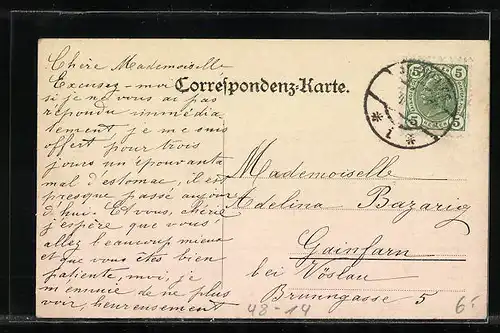 Chère Mademoiselle
Excusez-moi
si je ne vous ai pas
répondu immédia-
tement, je me suis
offert pour trois
jours un épouvanta
mal d'estomac, il est
presque passé aujour
d'hui. Et vous, chérie
j'espère que vous
allez beaucoup mieux
et que vous êtes bien
patiente, moi, je
m'ennuie de ne plus
voir, heureusement
Correspondenz-Karte.
5 5
5 5
* 1 *
Mademoiselle
Adelina Bazarig
Gainfarn
bei Vöslau
Brunngasse 5
48-14
6.-